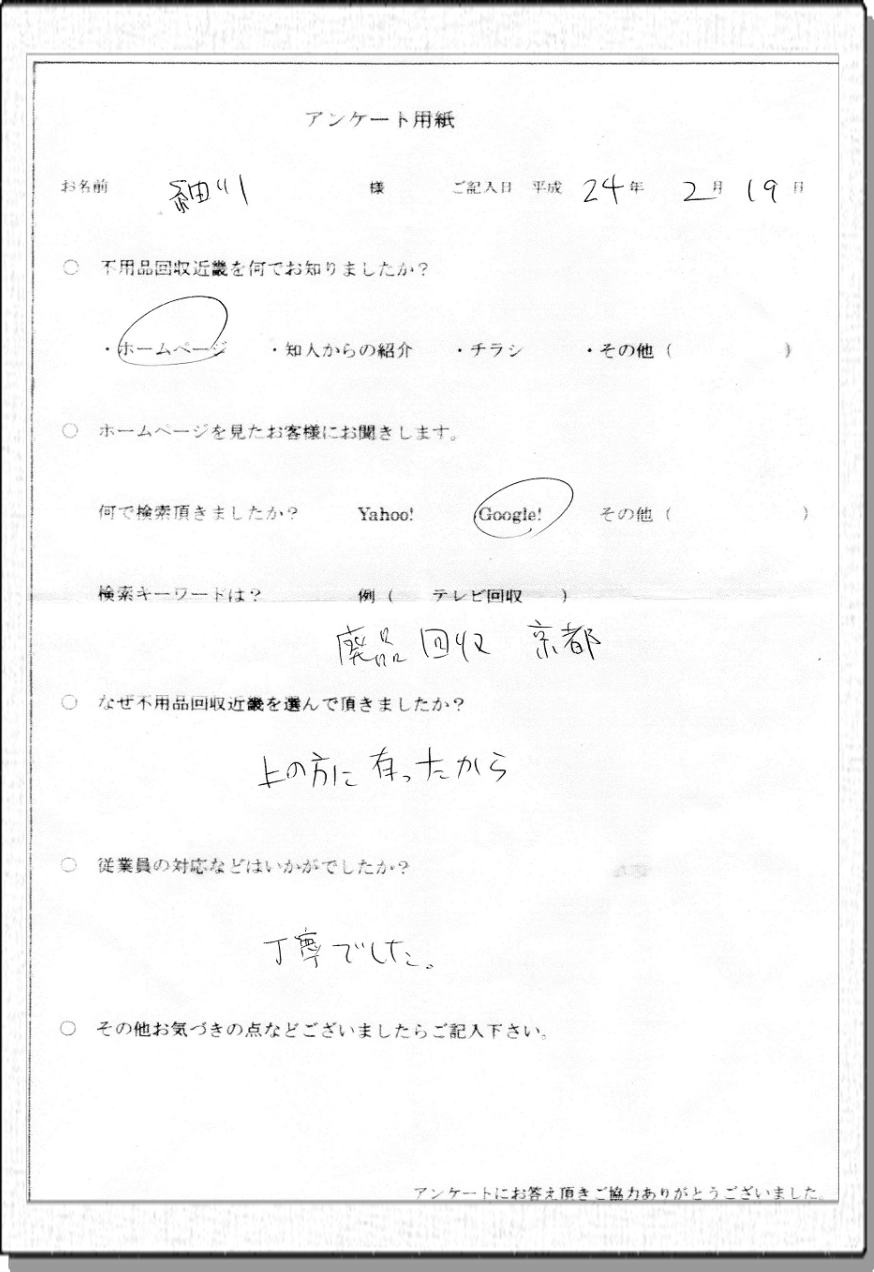 アンケート用紙
お名前 細川 様 ご記入日 平成 24 年 2 月 19 日
○ 不用品回収近畿を何でお知りましたか?
・ホームページ ・知人からの紹介 ・チラシ ・その他 ( )
○ ホームページを見たお客様にお聞きします。
何で検索頂きましたか? Yahoo! Google! その他 ( )
検索キーワードは? 例 ( テレビ回収 )
廃品回収 京都
○ なぜ不用品回収近畿を選んで頂きましたか?
上の方に有ったから
○ 従業員の対応などはいかがでしたか?
丁寧でした。
○ その他お気づきの点などございましたらご記入下さい。
アンケートにお答え頂きご協力ありがとうございました。